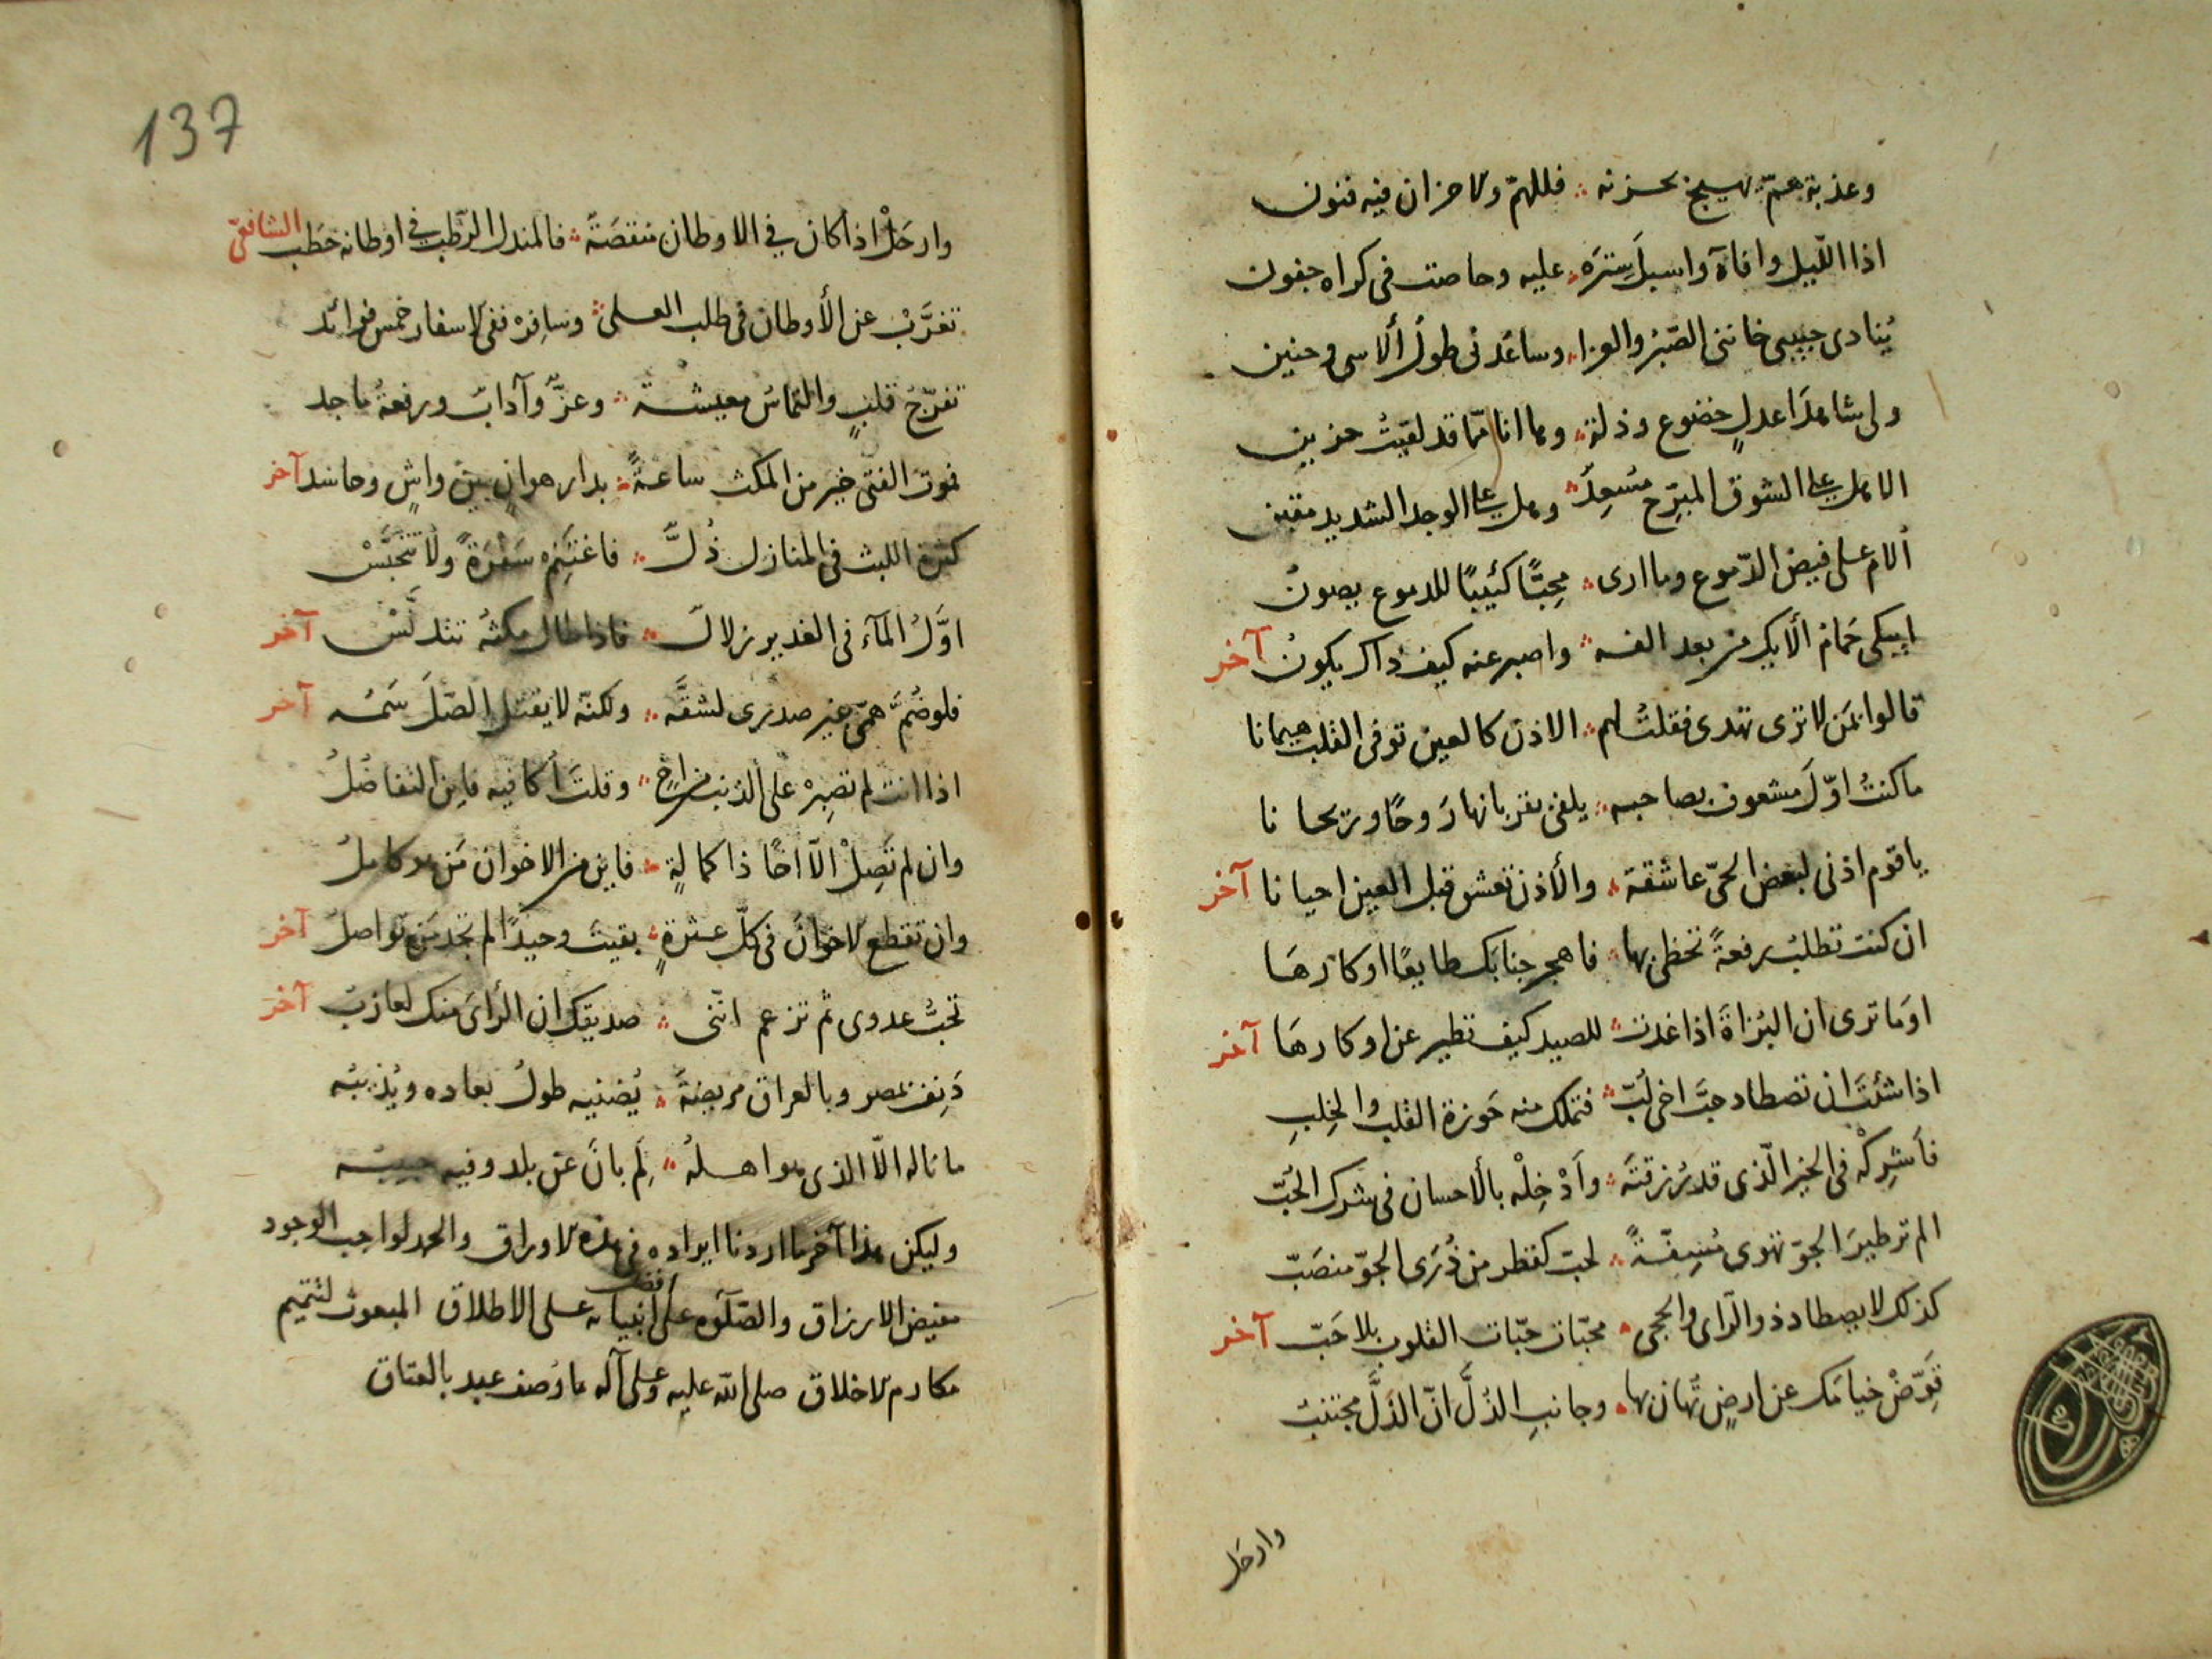 وعذبة همّ يهيج بحزنه ؞ فللهمّ ولاحزان فيه فنون
اذا اللّيل وافاة واسبل سِترَه ؞ عليه وحاصت فى كراه جفون
يُنادى حبيبى خاننى الصّبرُ والعزا ؞ وساعَدنى طولُ ألاسى وحنين
ولى شاهدَا عدلٍ خضوع وذلة ؞ وها انا ممّا قد لقيتُ حزين
الا هل على الشوق المبرِّح مُسْعِدٌ ؞ وهل على الوجد الشديد معين
اُلام على فيض الدّموع وما ارى ؞ محِبًّا كئيبًا للدموع يصونُ
ايبكى حَمامُ الأيك من بعد الفه ؞ واصبر عنه كيف ذاك يكونُ آخر
قالوا بمَن لا ترى تهذى فقلتُ لهم ؞ الاذن كالعين توفى القلب هيمانا
ما كنتُ اوّلَ مشعوف بصاحبه ؞ يلقى بقربانها رَوحًا وريحانا
ياقوم اذنى لبعض الحىّ عاشقة ؞ والأذن تعشق قبل العين احيانا آخر
ان كنت تطلبُ رفعةً تحظى بها ؞ فاهجر جنابَك طايعًا اوكارهَا
اوَما ترى ان البُزاةَ اذا غدت ؞ للصيد كيف تطير عن اوكارهَا آخر
اذا شئتَ ان تصطاد حبَّ اخى لُبّ ؞ فتملك منه حَوزة القلب والخِلبِ
فأشرِكْه فى الخير الّذى قد رُزقتَه ؞ وأَدْخِلْه بالأحسان فى شرك الحُبّ
الم تر طيرَ الجوّ تهوى مُسِفّةً ؞ لحبّ كقطر من ذُرَى الجوّ منصَبّ
كذلك لا يصطاد ذو الرّاى والحجى ؞ محبّات حبّات القلوب بلا حَبّ آخر
قَوِّضْ خيامَك عن ارضٍ تُهان بها ؞ وجانبِ الذُلَّ انّ الذلَّ مجتنبُ
وارحَل
137
وارحَلْ اذا كان فى الاوطان منقصَةٌ ؞ فالمندل الرّطب فى اوطانه حَطب الشافعىّ
تغرَّبْ عن الأوطان فى طلب العلى ؞ وسافِرْ ففى لاسفار خمس فوائد
تفرّجُ قلبٍ والتماسُ معيشة ؞ وعزٌّ وآدابٌ ورفعةُ ماجد
فموت الفتى خير من المكث ساعةً ؞ بدار هوانٍ بين واشٍ وحاسد آخر
كثرة اللبث فى المنازل ذُلٌّ ؞ فاغتَنِمْ سَفْرَةً ولا تتحَبَّسْ
اوّلُ المآء فى الغدير زلالٌ ؞ فاذا طال مكثهُ تتدنّسْ آخر
فلو ضُمَّ همّى غير صدرى لشقَّه ؞ ولكنّه لا يقتل الصّلَّ سَمُّه آخر
اذا انت لم تصبِرْ على الذنب من اخٍ ؞ وقلتَ أكافيه فاين التفاضُلُ
وان لم تَصِلْ الّا اخًا ذا كمالةٍ ؞ فاين من الاخوان مَن هو كاملُ
وان تقطع لاخوانَ فى كلّ عثرةٍ ؞ بقيتَ وحيدًا لم تجد مَن تواصلُ آخر
تحبُّ عدوى ثم تزعم انّنى ؞ صديقك ان الرأىَ منك لعازبُ آخر
دَنِف بمصر وبالعراق مريضةٌ ؞ يُضنيه طولُ بعاده ويُذيبُه
ما ناله الّا الذى هو اهلهُ ؞ لِمَ بانَ عن بلد وفيه حبيبُه
وليكن هذا آخر ما اردنا ايراده فى هذه لاوراق والحمد لواجب الوجود
مفيض الارزاق والصّلوة على افضل انبيائه على الاطلاق المبعوث لتتميم
مكارم لاخلاق صلى الله عليه وعلى آله ما وُصف عبد بالعتاق